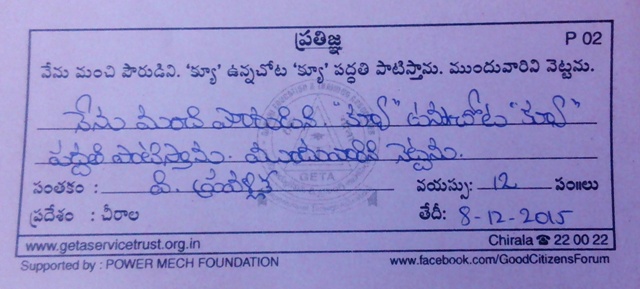 ప్రతిజ్ఞ P 02
నేను మంచి పౌరుడిని. 'క్యూ' ఉన్నచోట 'క్యూ' పద్ధతి పాటిస్తాను. ముందువారిని నెట్టను.
నేను మంచి పౌరుడిని "క్యూ" ఉన్నచోట "క్యూ"
పద్ధతి పాటిస్తాను. ముందువారిని నెట్టను.
సంతకం : వి. వయస్సు: 12 సం॥లు
ప్రదేశం : చీరాల తేదీ: 8-12-2015
www.getaservicetrust.org.in Chirala ☎ 22 00 22
Supported by : POWER MECH FOUNDATION www.facebook.com/GoodCitizensForum
GETA